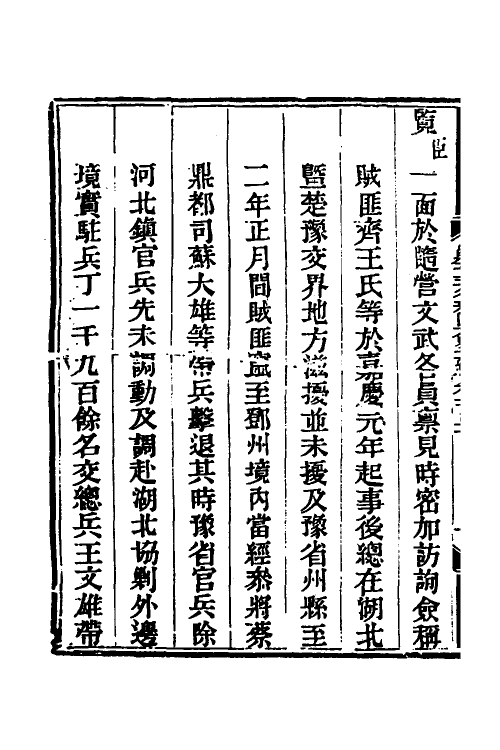 覽臣一面於隨營文武各員稟見時密加訪詢僉稱
賊匪齊王氏等於嘉慶元年起事後總在湖北
暨楚豫交界地方滋擾並未擾及豫省州縣至
二年正月間賊匪竄至鄧州境內當經叅將蔡
鼎都司蘇大雄等帶兵擊退其時豫省官兵除
河北鎮官兵先未調動及調赴湖北協剿外邊
境實駐兵丁一千九百餘名交總兵王文雄帶